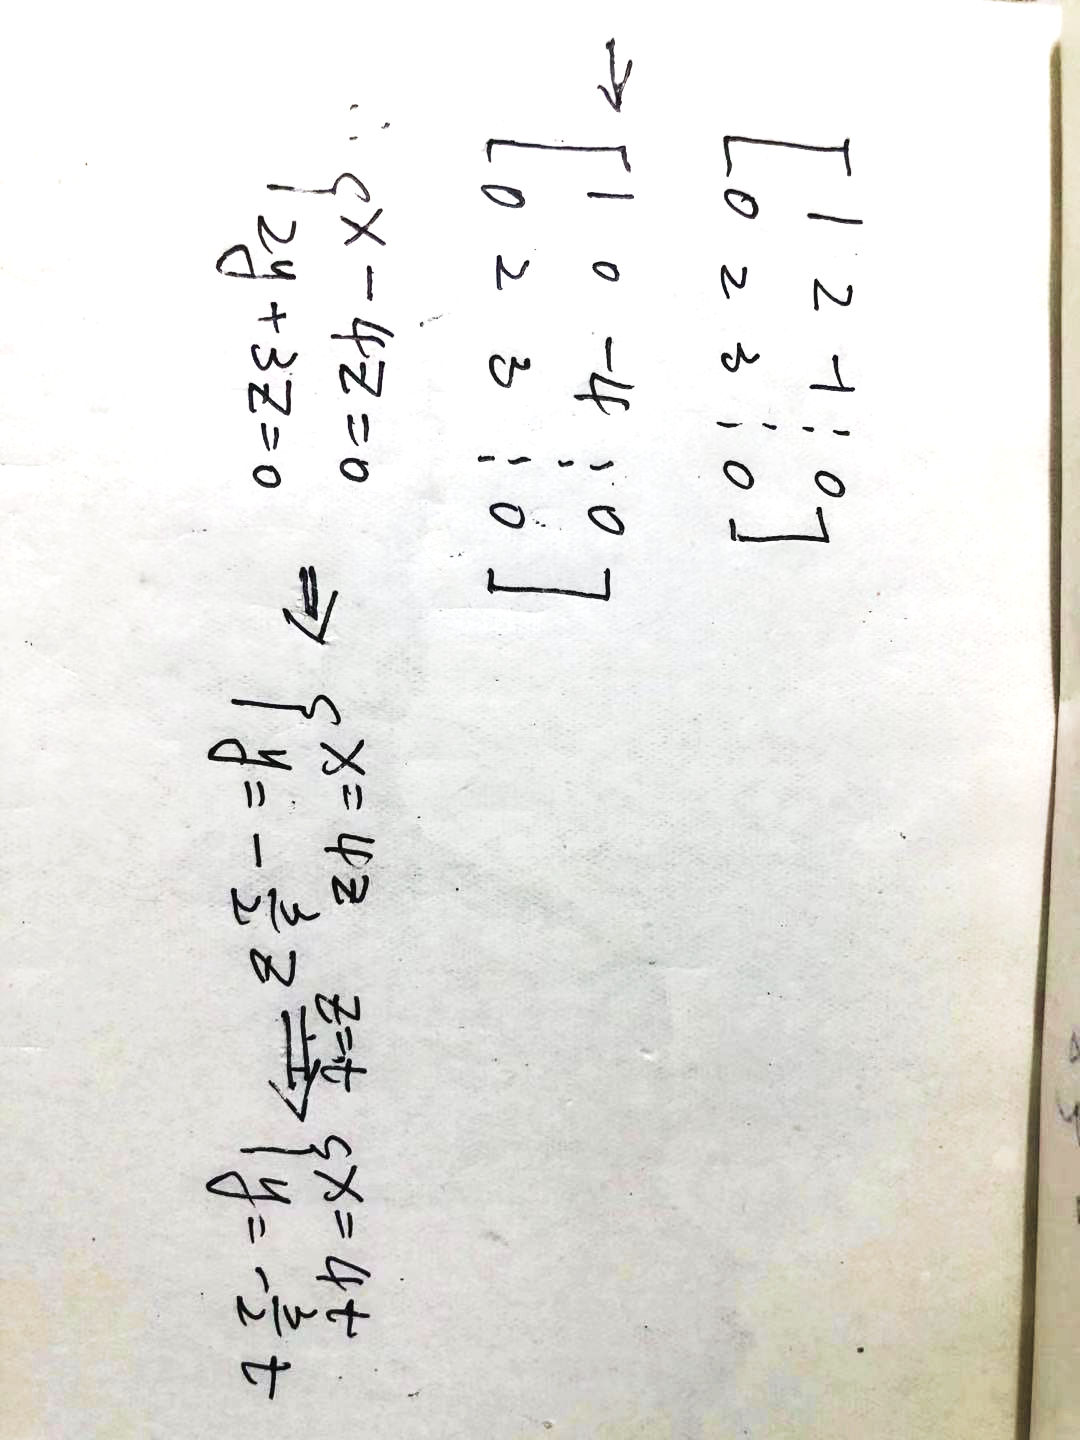 [ 1 2 -1 ⋮ 0
0 2 3 ⋮ 0 ]
→ [ 1 0 -4 ⋮ 0
0 2 3 ⋮ 0 ]
∴ { x - 4z = 0
2y + 3z = 0
⇒ { x = 4z
y = - 3/2 z
z = t ⇒ { x = 4t
y = - 3/2 t